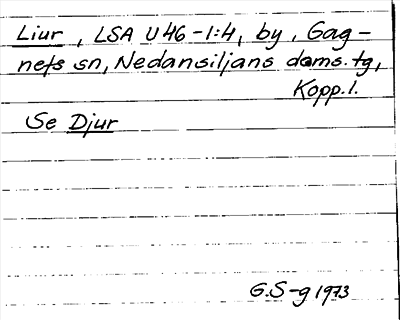 Liur, LSA U46-1:4, by, Gag-
nefs sn, Nedansiljans doms. tg,
Kopp. l.
Se Djur
G.S-g 1973